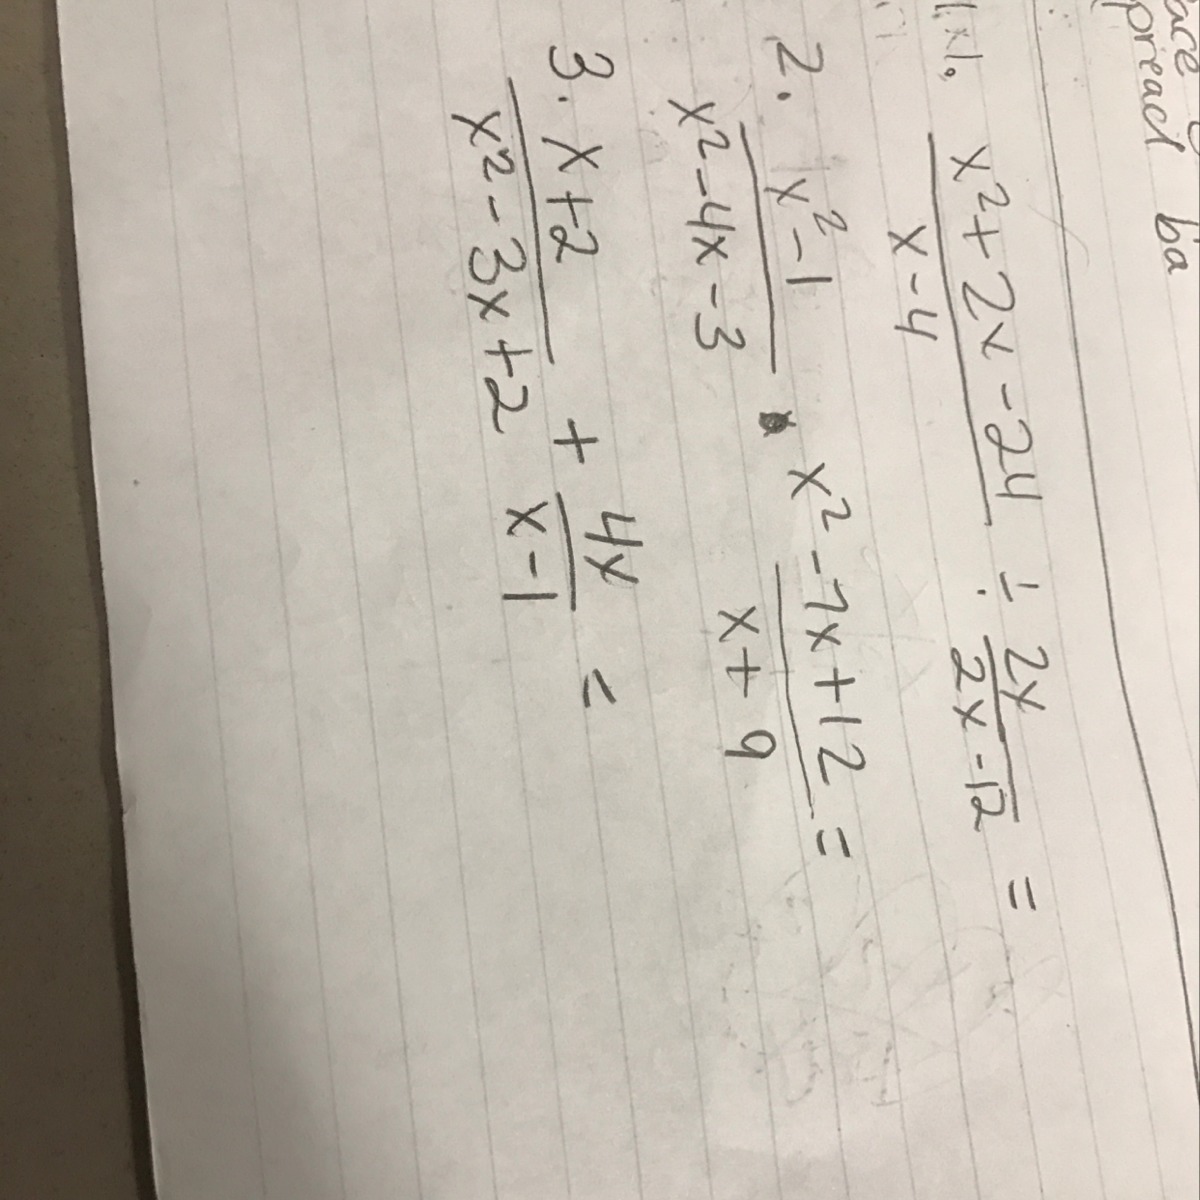 ace
preact ba
1. x²+2x-24 / x-4 ÷ 2x / 2x-12 =
2. x²-1 / x²-4x-3 • x²-7x+12 / x+9 =
3. x+2 / x²-3x+2 + 4x / x-1 =